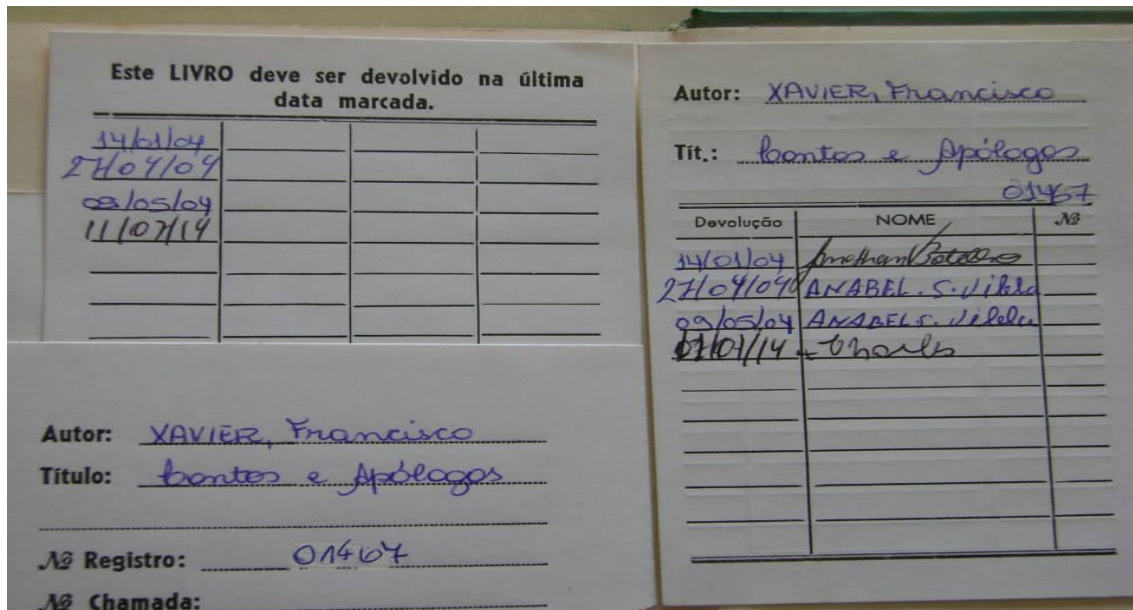 Este LIVRO deve ser devolvido na última
data marcada.
14/01/04
27/04/04
09/05/04
11/07/14
Autor: XAVIER, Francisco
Título: Contos e Apólogos
Nº Registro: 01467
Nº Chamada:
Autor: XAVIER, Francisco
Tít.: Contos e Apólogos
01467
Devolução NOME Nº
14/01/04 Jonathan
27/04/04 ANABEL. S. Vilela
09/05/04 ANABEL S. Vilela
07/07/14 Charles